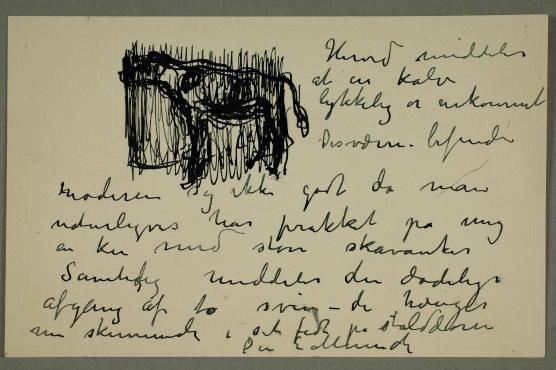 Herved meddeles
at en kalv
lykkelig er ankommet
Desværre befinder
moderen sig ikke godt da man
naturligvis har prakket på mig
en ko med store skavanker
Samtidig meddeles den dødelige
afgang af to svin – de hænger
nu skinnende i sit fedt på stalddøren
Din E